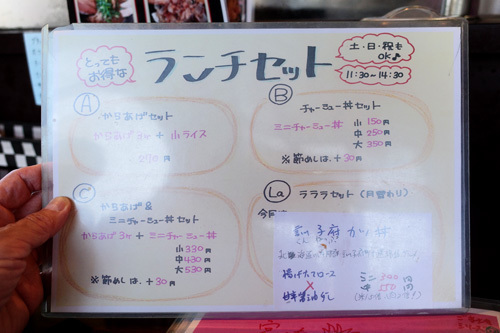 とっても
お得な
ランチセット
土・日・祝も
OK♪
11:30~14:30
A
からあげセット
からあげ3ヶ + 小ライス
270円
B
チャーシュー丼セット
ミニチャーシュー丼 小 150円
中 250円
大 350円
※節めしは、+30円
C
からあげ&
ミニチャーシュー丼セット
からあげ3ヶ + ミニチャーシュー丼
小 330円
中 430円
大 530円
※節めしは、+30円
La
ラララセット (月替わり)
今月
子府 カツ丼
揚げたてロース
×
醤油ダし
ミニ 300円
中 550円